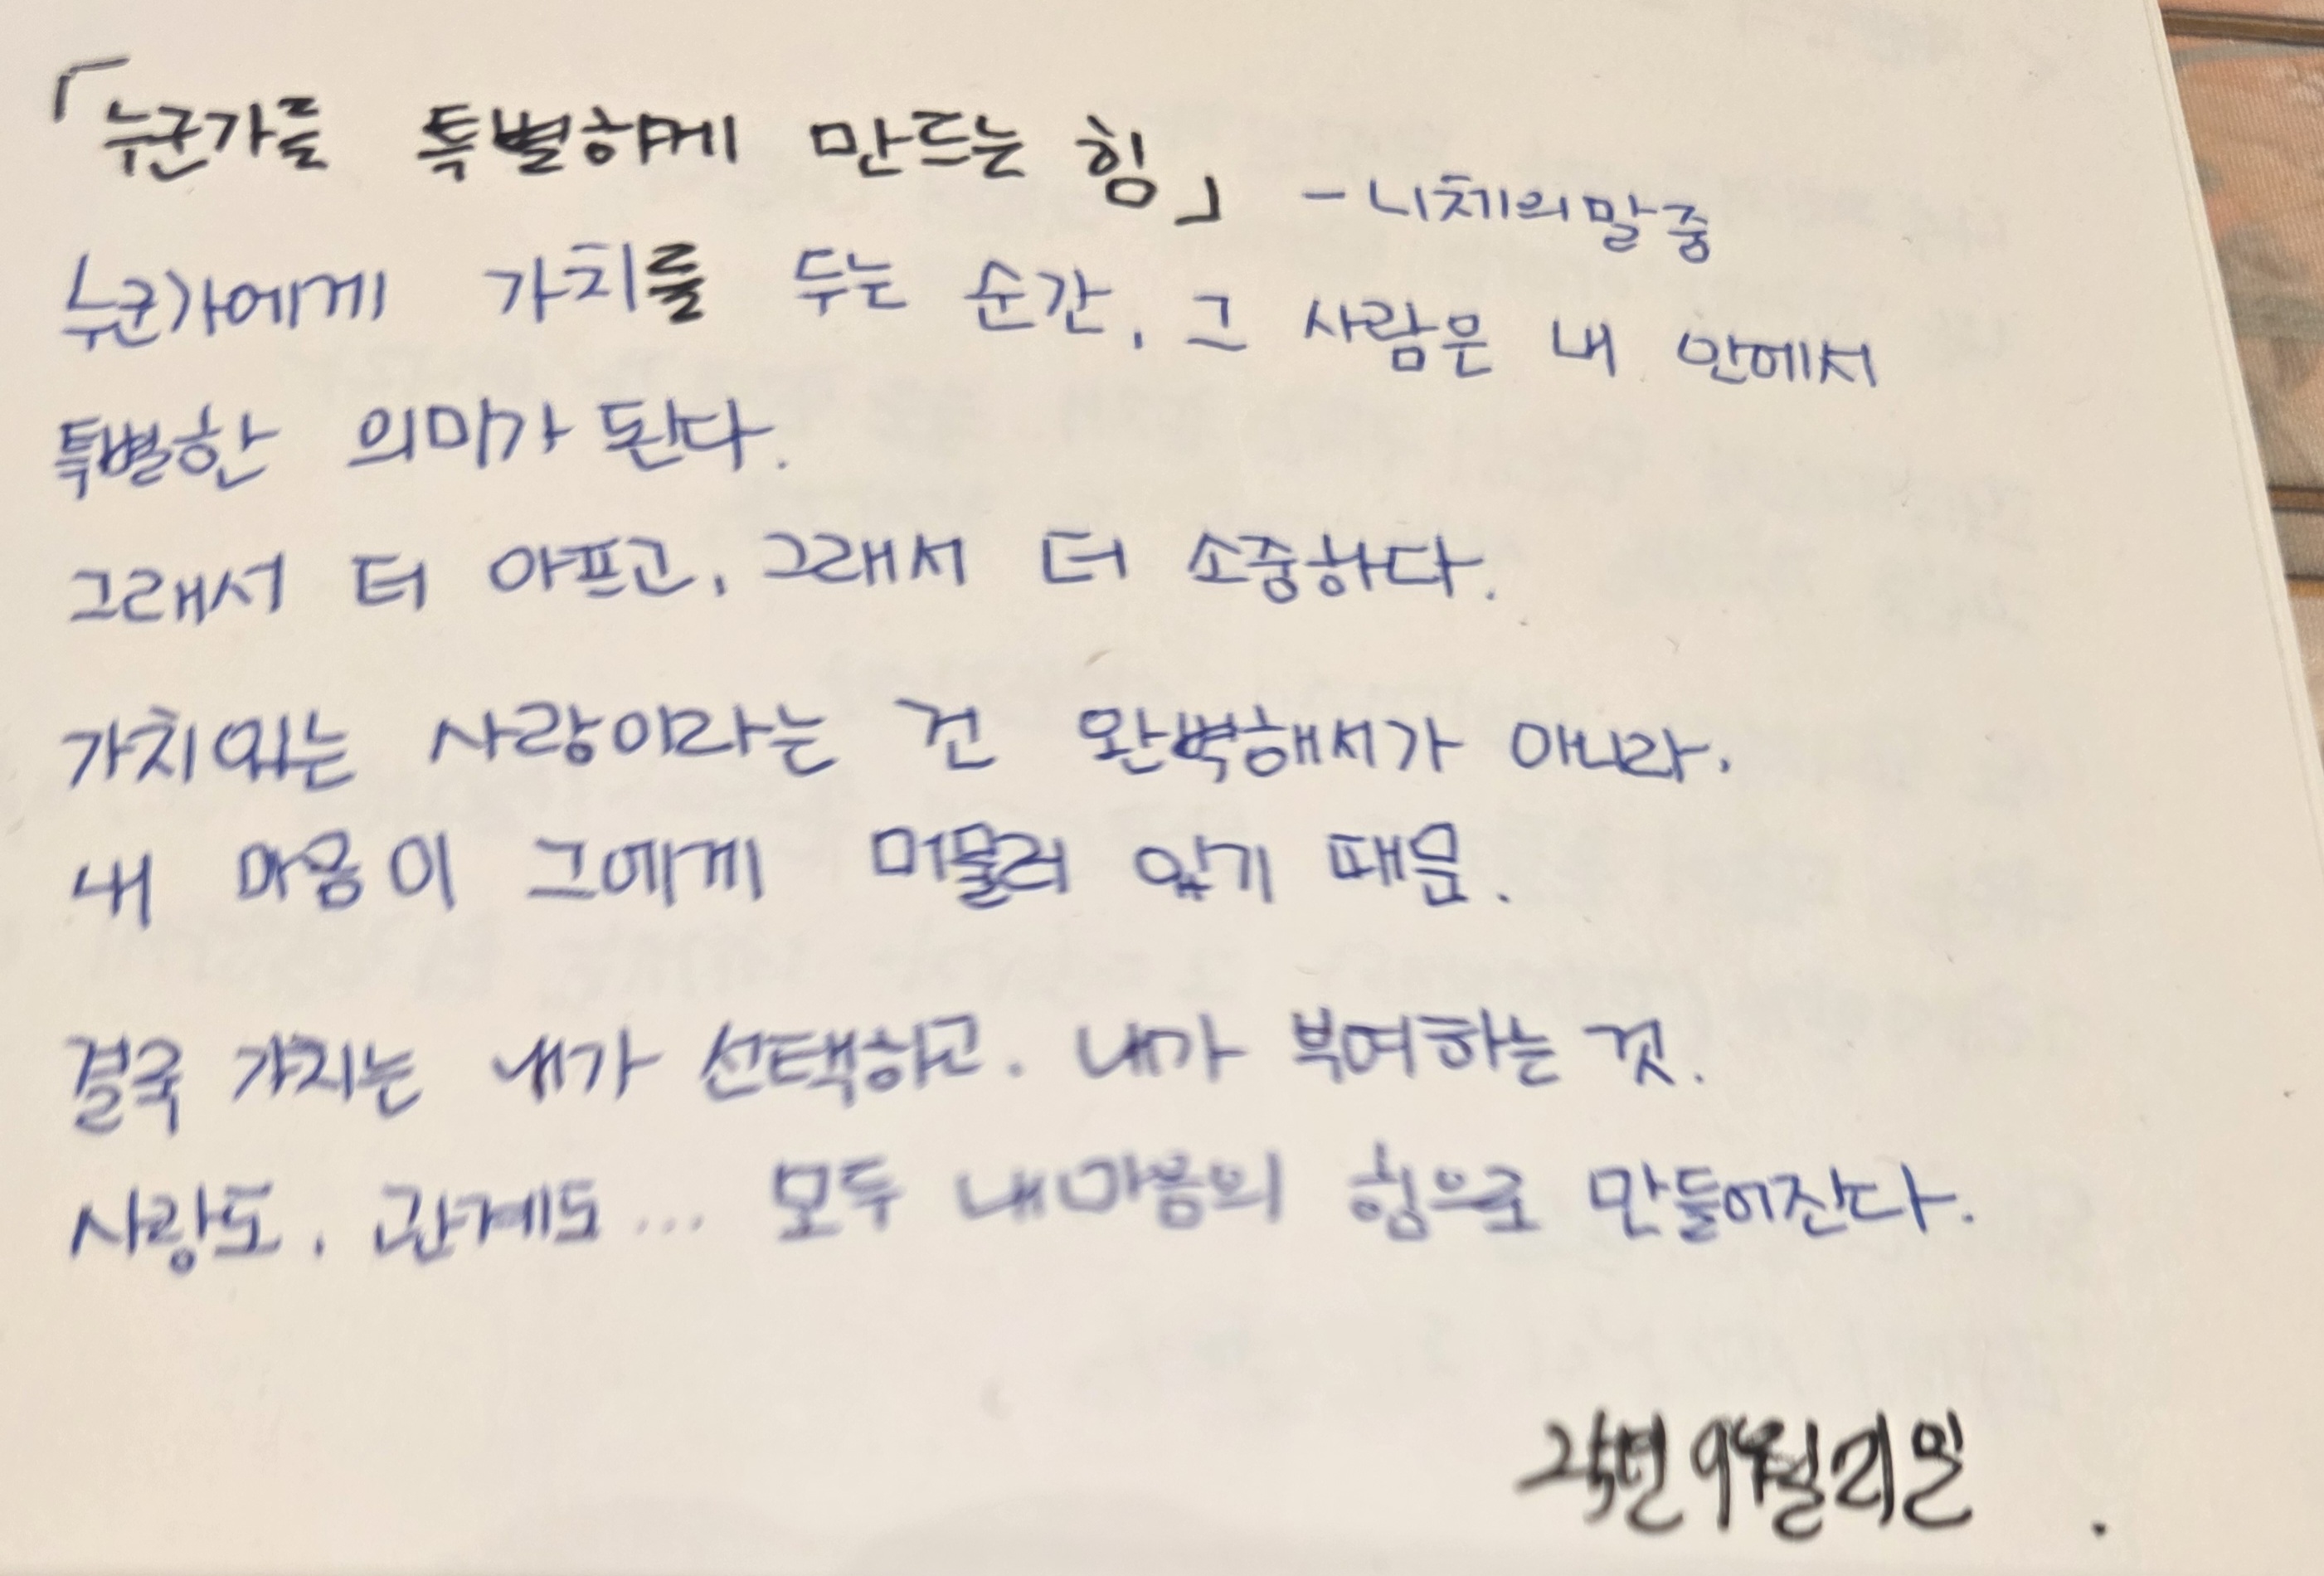 「누군가를 특별하게 만드는 힘」 - 니체의 말 중
누군가에게 가치를 두는 순간, 그 사람은 내 안에서
특별한 의미가 된다.
그래서 더 아프고, 그래서 더 소중하다.
가치있는 사랑이라는 건 완벽해서가 아니라.
내 마음이 그에게 머물러 있기 때문.
결국 가치는 내가 선택하고. 내가 부여하는 것.
사랑도, 관계도... 모두 내마음의 힘으로 만들어진다.
25년 9월 21일.